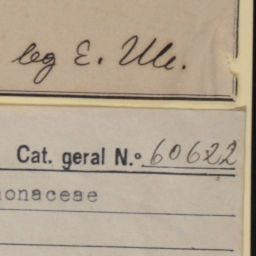 leg E. Ule.
Cat. geral N.º 60622
onaceae